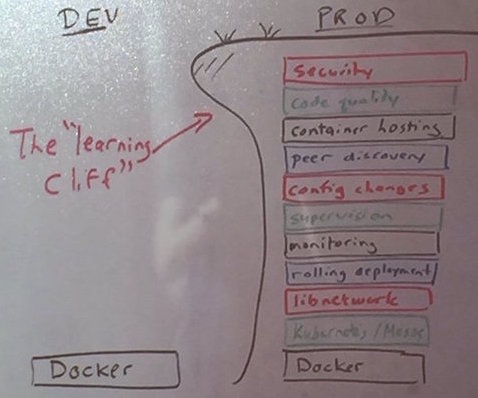 DEV
PROD
The "learning
Cliff"
security
code quality
container hosting
peer discovery
config changes
supervision
monitoring
rolling deployment
libnetwork
Kubernetes/Mesos
Docker
Docker